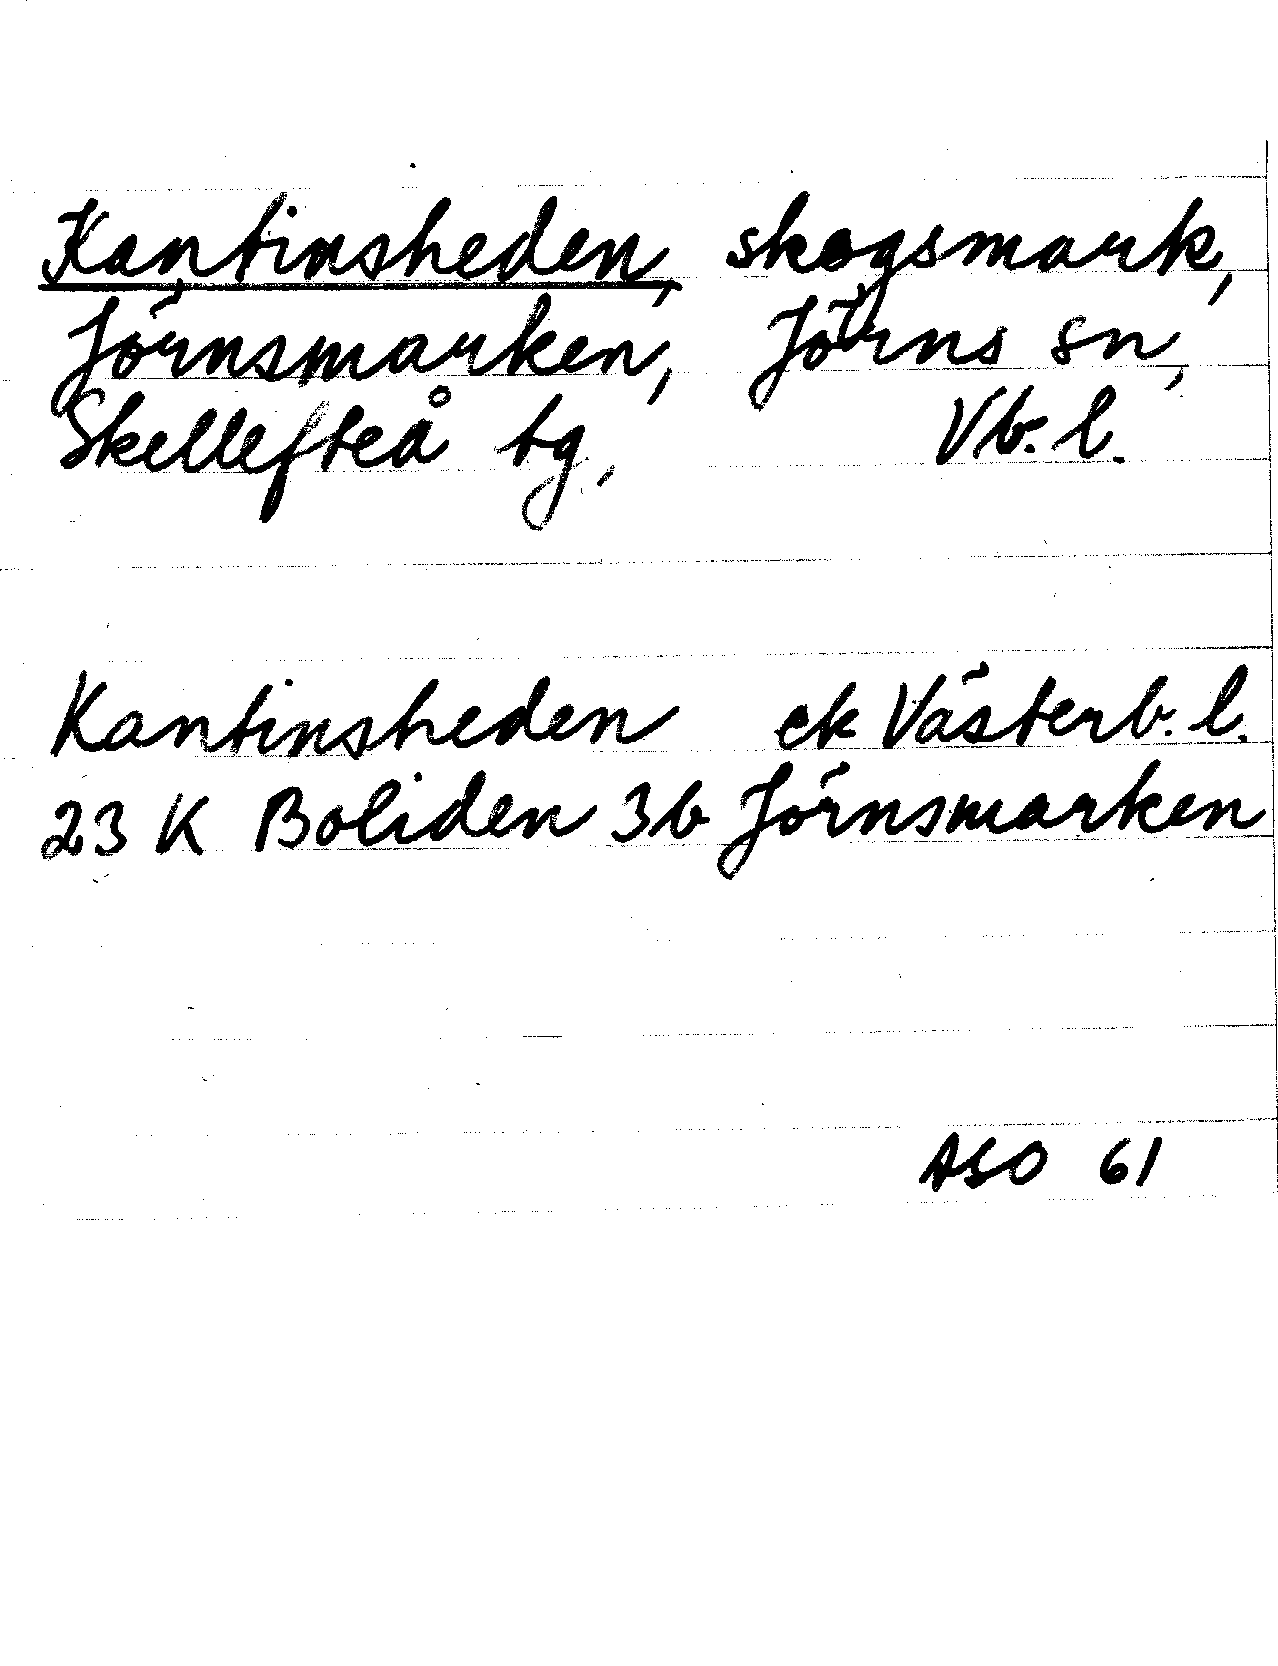 Kantinsheden, skogsmark,
Jörnsmarken, Jörns sn,
Skellefteå tg, Vb. l.
Kantinsheden ek Västerb. l.
23 K Boliden 3b Jörnsmarken
ASO 61